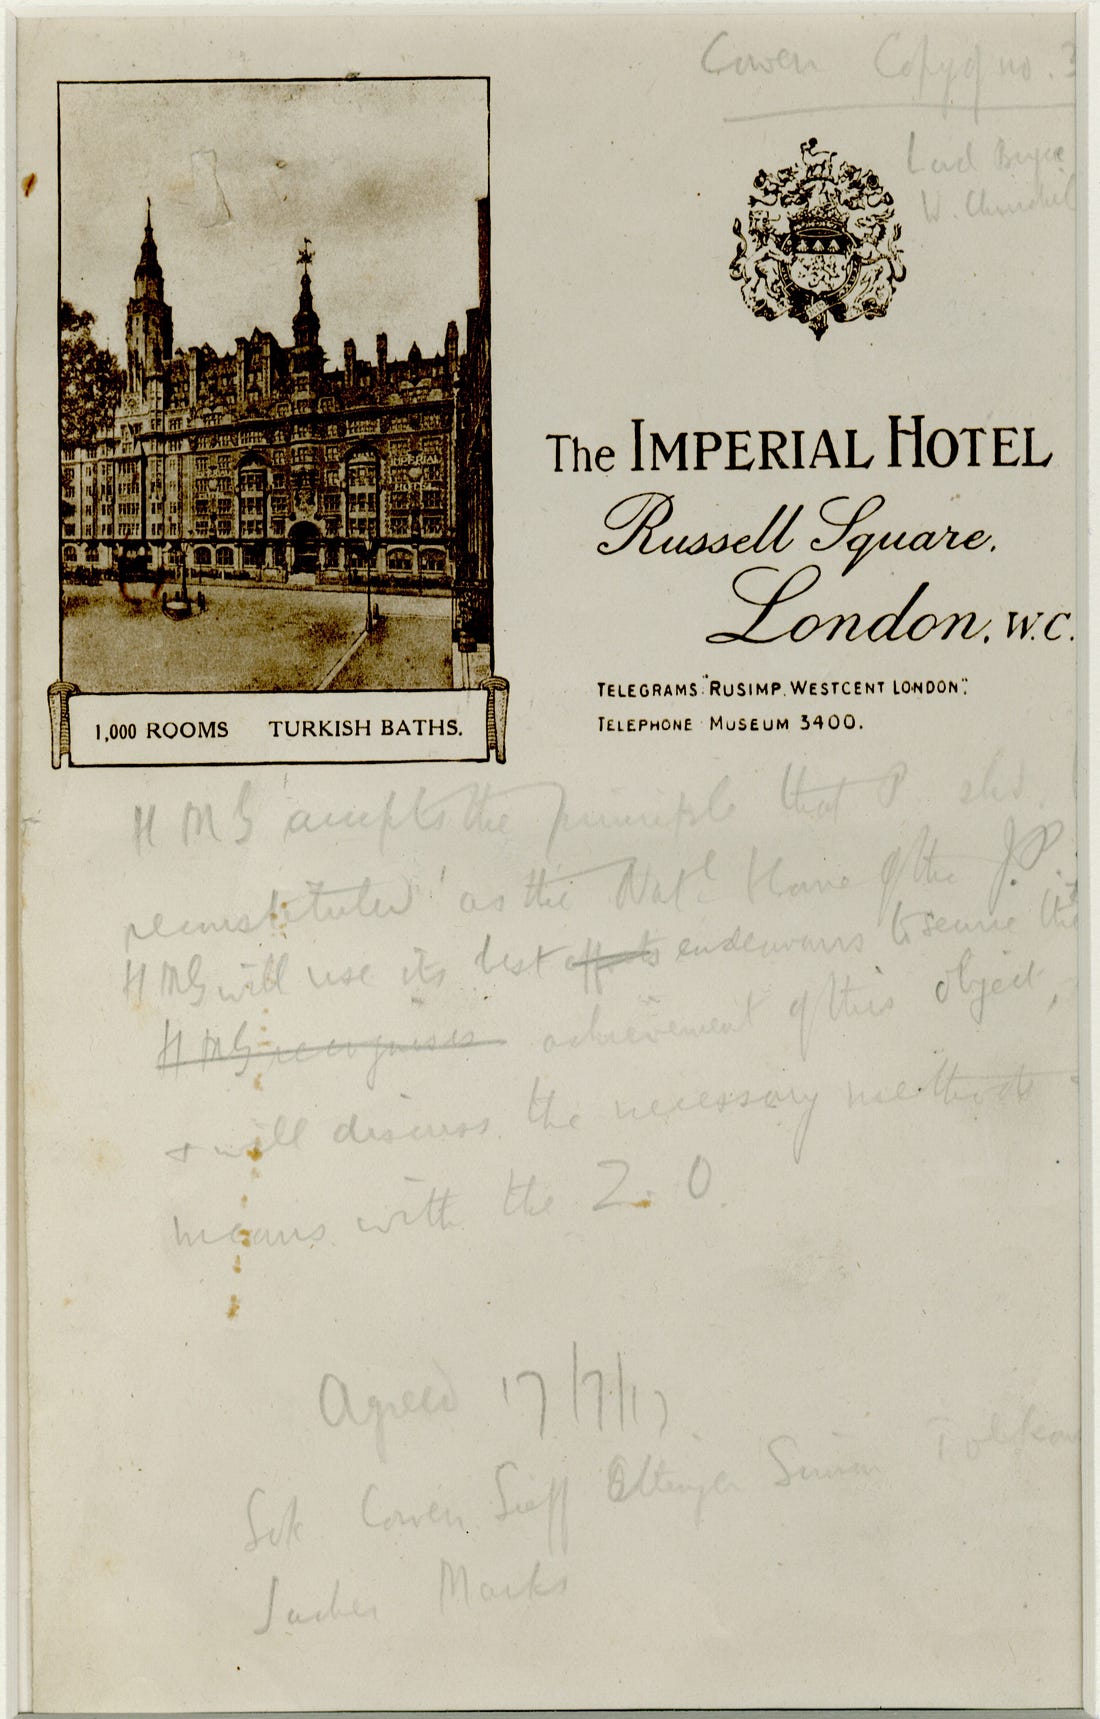 Cowen Copy of no. 3
Lord Bryce
W. Churchill
The IMPERIAL HOTEL
Russell Square.
London. W.C.
TELEGRAMS "RUSIMP. WESTCENT LONDON".
TELEPHONE MUSEUM 3400.
1,000 ROOMS TURKISH BATHS.
H M G accepts the principle that P shd.
reconstituted as the Natl Home of the J.P.
HMG will use its best efforts endeavours to secure the
HMG recognises achievement of this object,
+ will discuss the necessary methods +
means with the Z. O.
Agreed 17/7/17
Sok Cowen Sieff Ettinger Simon Tolkow
Sacher Marks